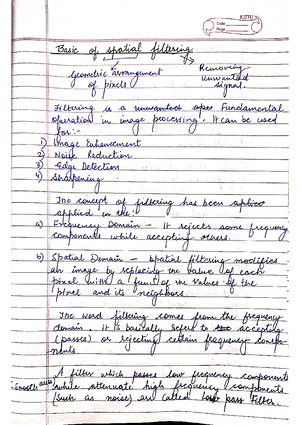 Date
Page
Basic of spatial filtering
Geometric arrangement of pixels
Removing unwanted signal.
Filtering is a Fundamental
operation in image processing. It can be used
for:-
1) Image Enhancement
2) Noise Reduction
3) Edge Detection
4) Sharpening
The concept of filtering has been
applied in the:
a) Frequency Domain - It rejects some frequency
components while accepting others.
b) Spatial Domain - Spatial filtering modifies
an image by replacing the value of each
pixel with a funct of the values of the
pixel and its neighbors.
The word filtering comes from the frequency
domain. It is basically refers to accepting
(passes) or rejecting certain frequency compo-
nents
A filter which passes low frequency components
(smooth areas) while attenuate high frequency components
(such as noise) are called low pass Filter.